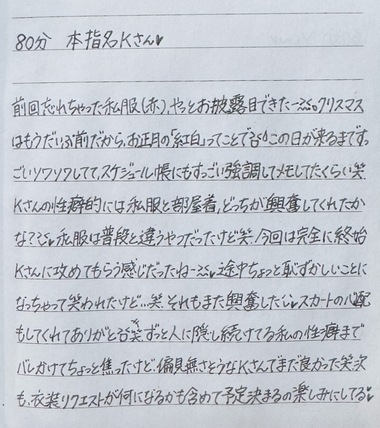 80分 本指名Kさん♥
前回忘れちゃった私服(赤)、やっとお披露目できたー💦クリスマス
はもうだいぶ前だから、お正月の「紅白」ってことで この日が来るまですっ
ごいソワソワしてて、スケジュール帳にもすっごい強調してメモしてたくらい笑
Kさんの性癖的には私服と部屋着、どっちが興奮してくれたか
な? 私服は普段と違うやつだったけど笑、今回は完全に終始
Kさんに攻めてもらう感じだったねー 途中ちょっと恥ずかしいことに
なっちゃって笑われたけど…笑、それもまた興奮した♡スカートの心配
もしてくれてありがと 笑 ずっと人に隠し続けてる私の性癖まで
バレかけてちょっと焦ったけど、偏見無さそうなKさんでまだ良かった笑 次
も、衣装リクエストが何になるかも含めて予定決まるの楽しみにしてる♥